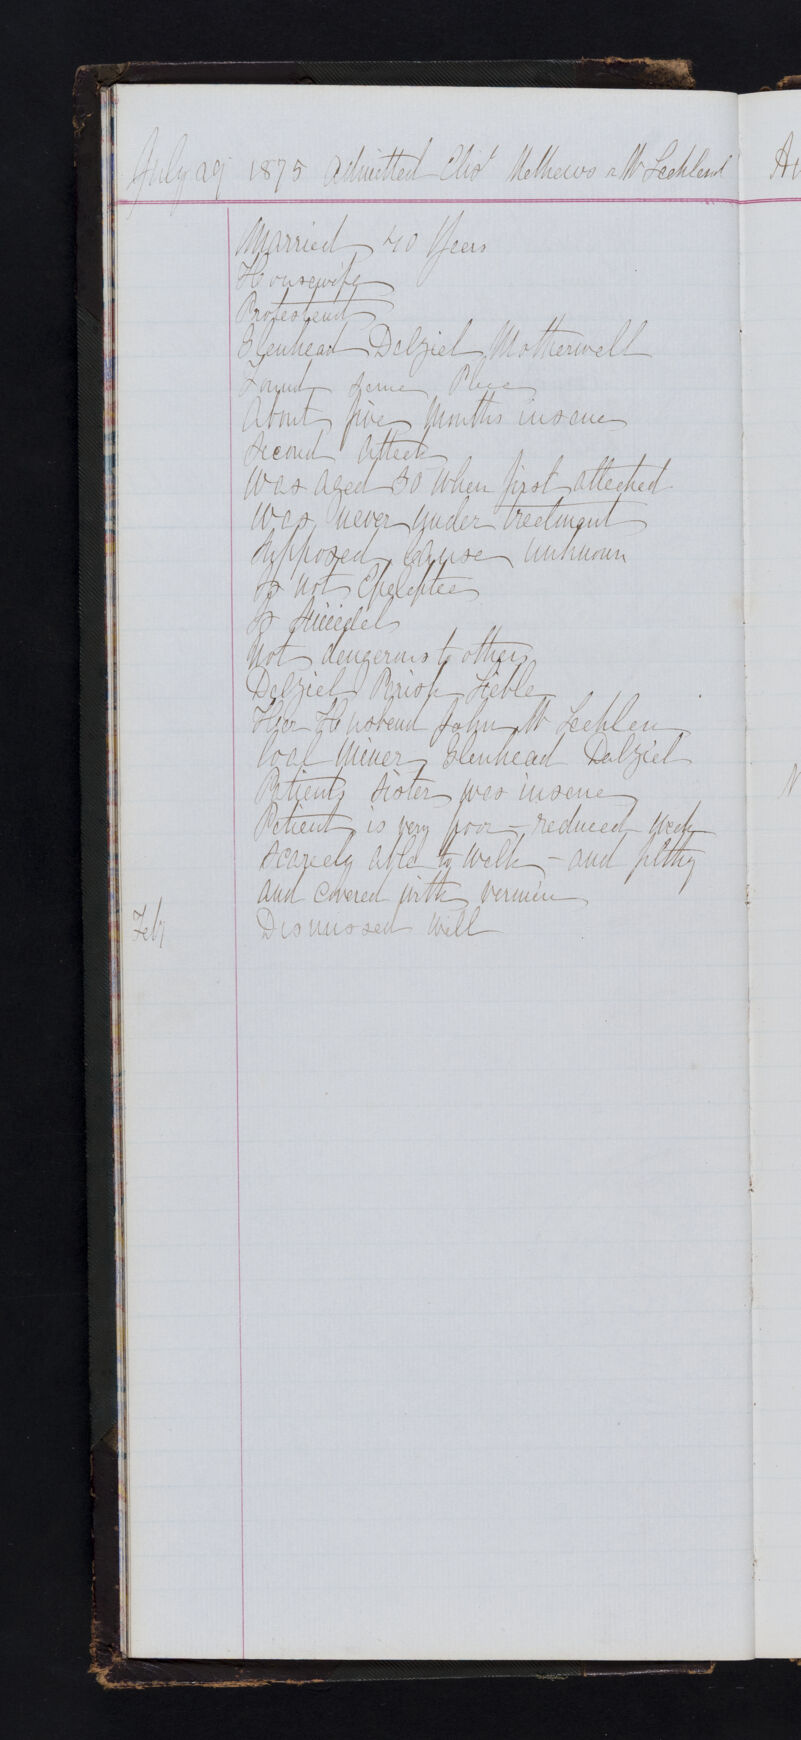 July 29 1875 Admitted Eliz<sup>t</sup> Mathews or Mc Lachland
Married 40 Years
Housewife
Protestant
Glenhead Dalziel Motherwell
Found same Place
About five Months insane
Second Attack
Was aged 30 when first attacked
Was never under treatment
Supposed Cause unknown
Is not Epeleptic
Is Suicidal
Not dangerous to others
Dalziel Parish Liable
Her Husband John Mc Lachlan
Coal Miner Glenhead Dalziel
Patients Sister was insane
Patient is very poor - reduced - weak
Scarcely able to Walk - and filthy
and Covered with vermin
Feby Dismissed Well